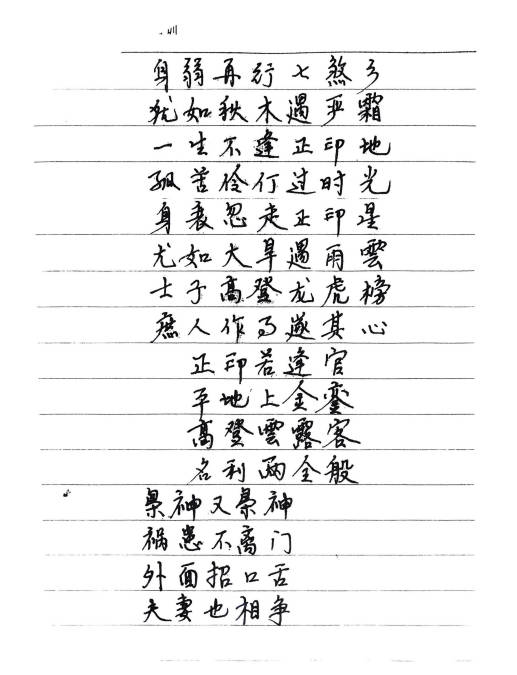 身弱再行七煞乡
犹如秋木遇严霜
一生不逢正印地
孤苦伶仃过时光
身衰忽走正印星
尤如大旱遇雨雲
士子高登龙虎榜
庶人作事遂其心
正印若逢官
平地上金銮
高登雲露客
名利两全般
枭神又枭神
祸患不离门
外面招口舌
夫妻也相争